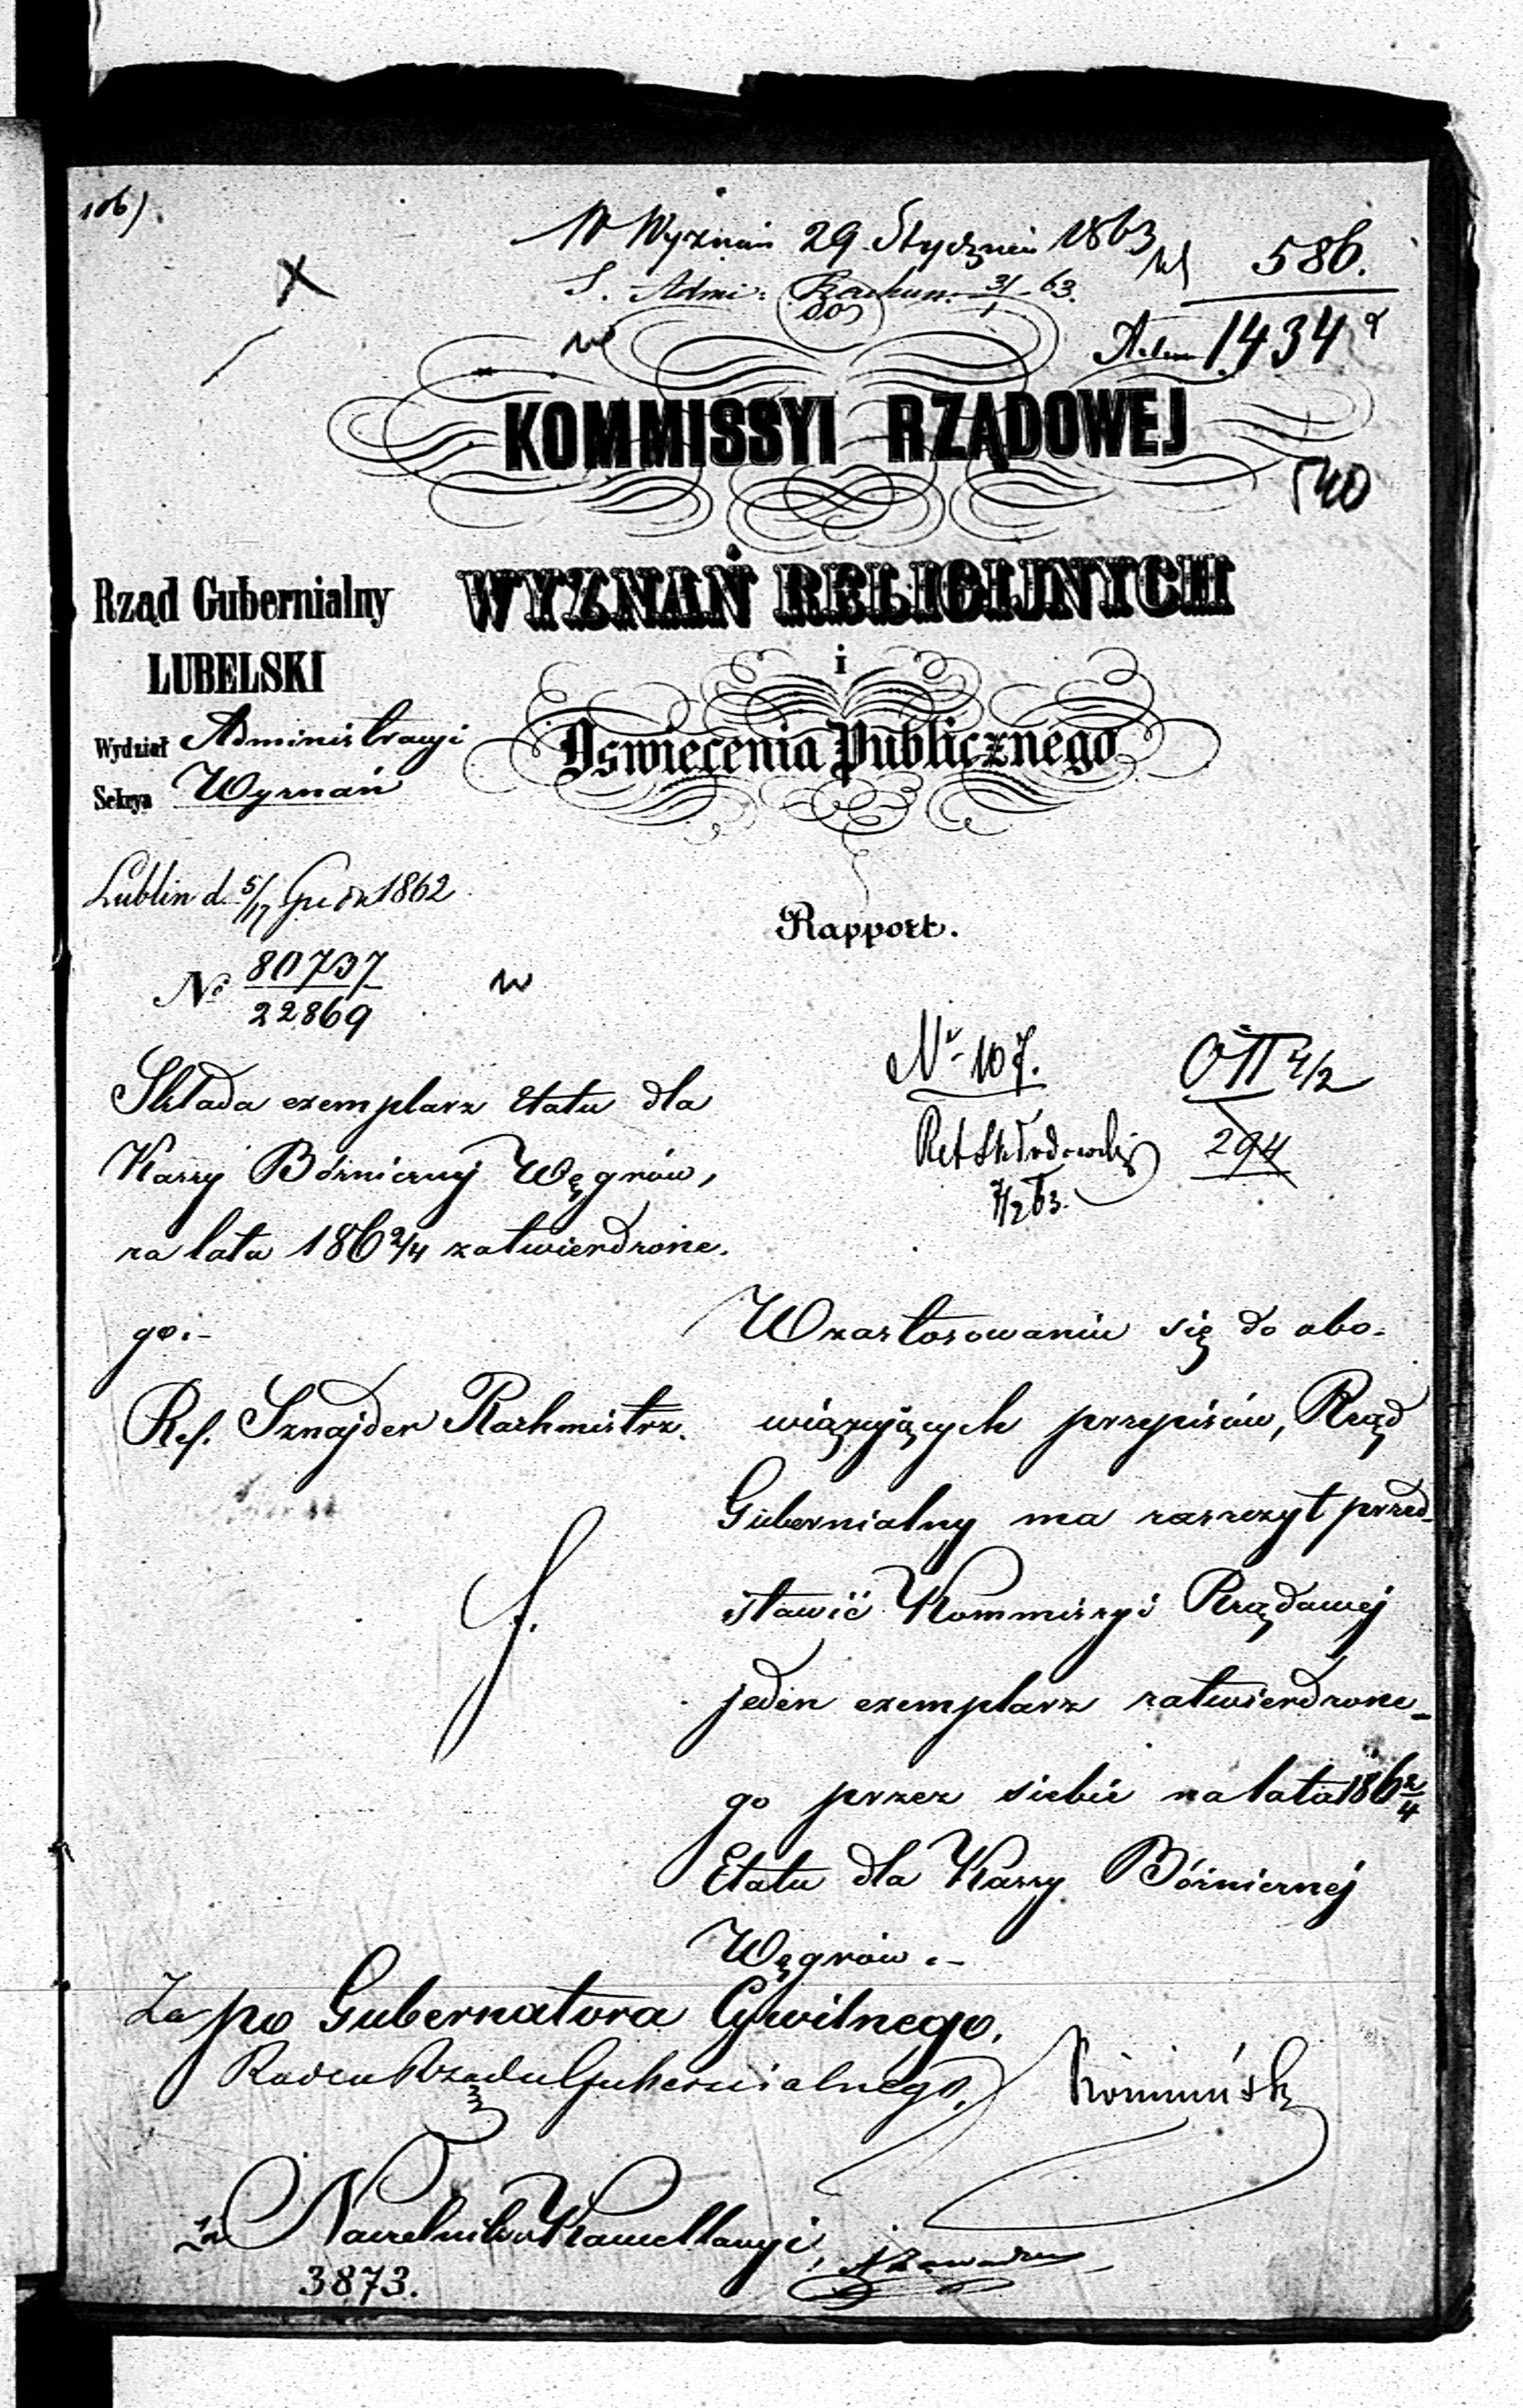 106)
W Wyznań 29 Stycznia 1863
586.
S. Admi: Rachun. 31/1 63.
1434
KOMMISSYI RZĄDOWEJ
540
WYZNAŃ RELIGIJNYCH
i
Oświecenia Publicznego
Rząd Gubernialny
LUBELSKI
Wydział Administracyi
Sekcya Wyznań
Lublin d. 5/17 Grudn 1862
Rapport.
No 80737
22869
No 107.
Składa exemplarz Etatu dla
Kassy Bóżnicznéj Węgrów,
na lata 186 2/4 zatwierdzone.
go.-
Ref. Sznajder Rachmistrz.
294
7/2 63.
W zastosowaniu się do obo-
wiązujących przepisów, Rząd
Gubernialny ma zaszczyt przed-
stawić Kommissyi Rządowéj
jeden exemplarz zatwierdzone-
go przez siebie na lata 186 2/4
Etatu dla Kassy Bóżnicznéj
Węgrów.-
Za po Gubernatora Cywilnego,
Radca Rządu Gubernialnego,
za Naczelnika Kancellaryi,
3873.